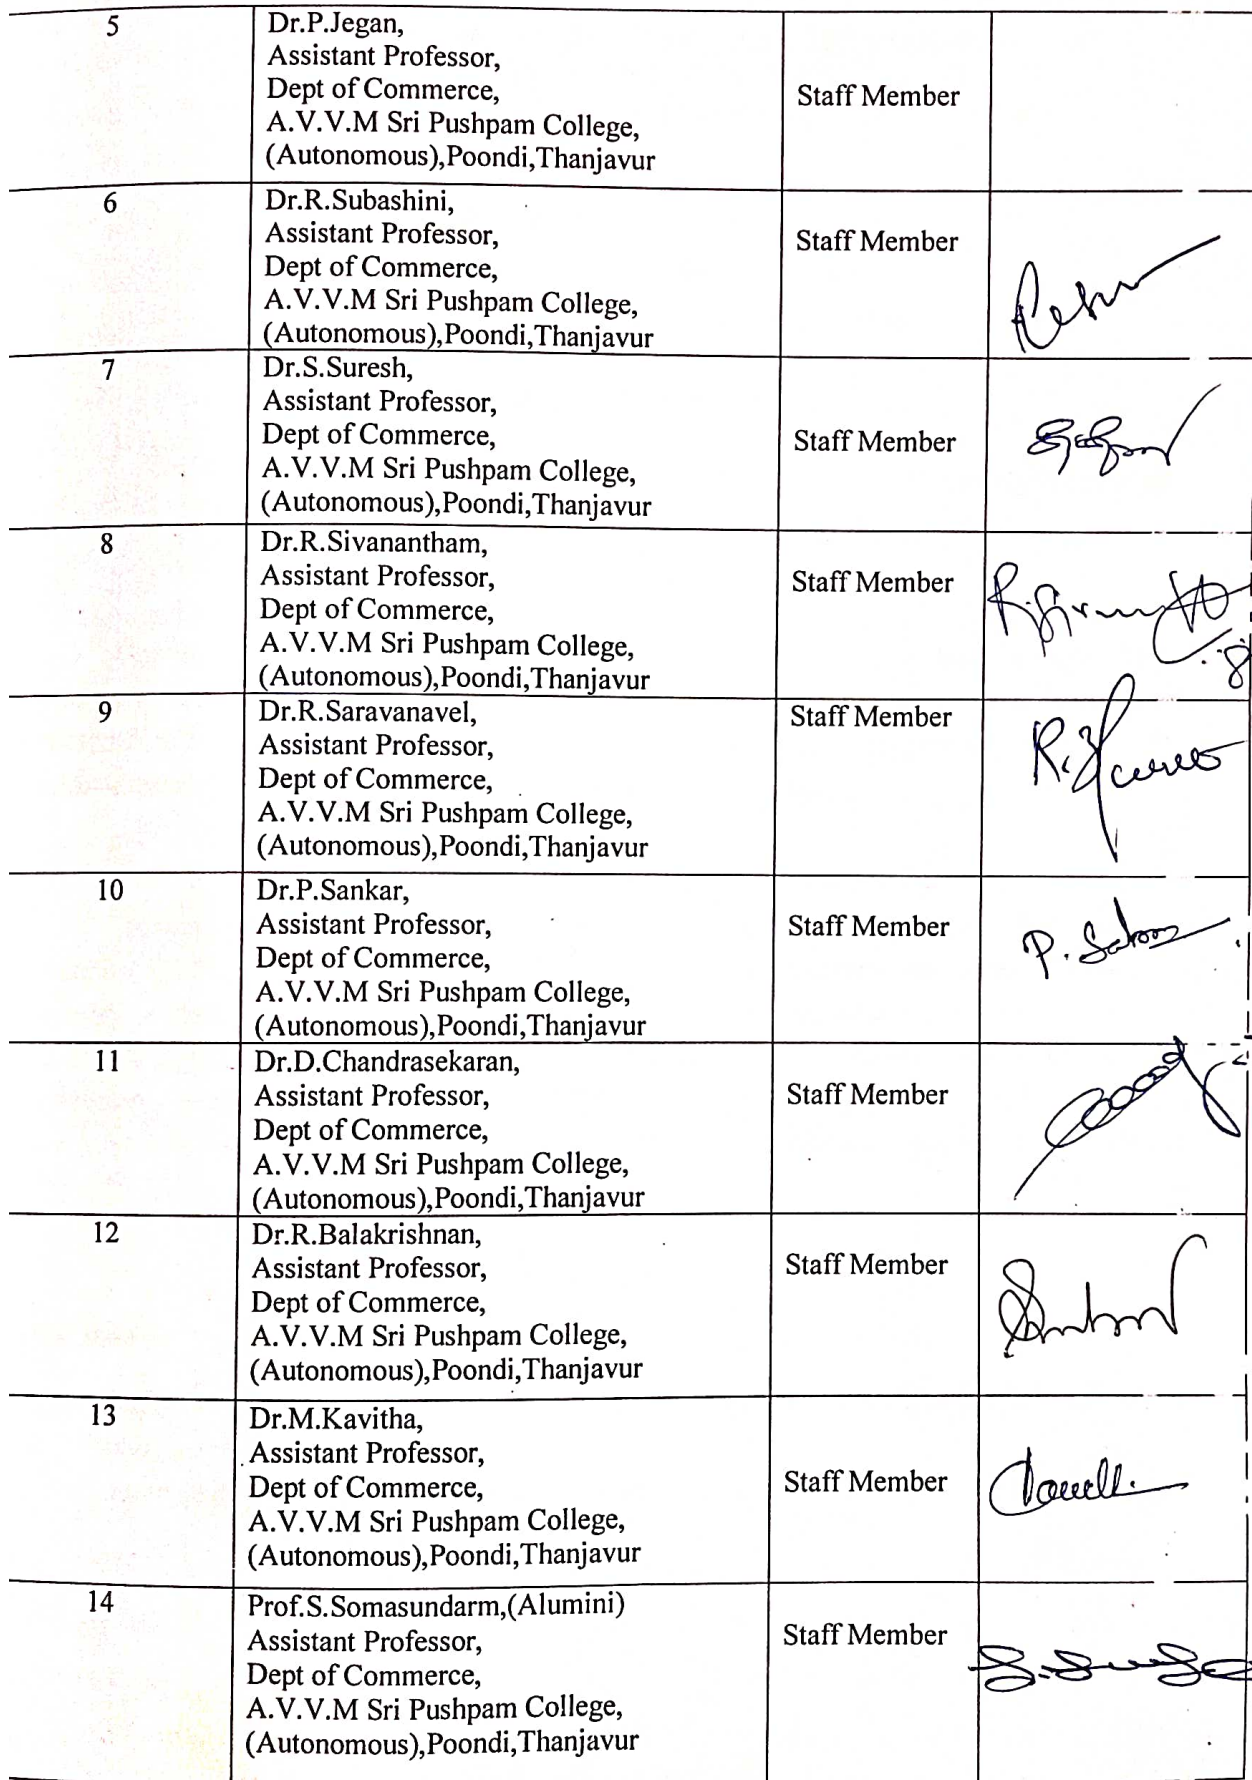 5
Dr.P.Jegan,
Assistant Professor,
Dept of Commerce,
A.V.V.M Sri Pushpam College,
(Autonomous),Poondi,Thanjavur
Staff Member
6
Dr.R.Subashini,
Assistant Professor,
Dept of Commerce,
A.V.V.M Sri Pushpam College,
(Autonomous),Poondi,Thanjavur
Staff Member
7
Dr.S.Suresh,
Assistant Professor,
Dept of Commerce,
A.V.V.M Sri Pushpam College,
(Autonomous),Poondi,Thanjavur
Staff Member
8
Dr.R.Sivanantham,
Assistant Professor,
Dept of Commerce,
A.V.V.M Sri Pushpam College,
(Autonomous),Poondi,Thanjavur
Staff Member
9
Dr.R.Saravanavel,
Assistant Professor,
Dept of Commerce,
A.V.V.M Sri Pushpam College,
(Autonomous),Poondi,Thanjavur
Staff Member
10
Dr.P.Sankar,
Assistant Professor,
Dept of Commerce,
A.V.V.M Sri Pushpam College,
(Autonomous),Poondi,Thanjavur
Staff Member
11
Dr.D.Chandrasekaran,
Assistant Professor,
Dept of Commerce,
A.V.V.M Sri Pushpam College,
(Autonomous),Poondi,Thanjavur
Staff Member
12
Dr.R.Balakrishnan,
Assistant Professor,
Dept of Commerce,
A.V.V.M Sri Pushpam College,
(Autonomous),Poondi,Thanjavur
Staff Member
13
Dr.M.Kavitha,
Assistant Professor,
Dept of Commerce,
A.V.V.M Sri Pushpam College,
(Autonomous),Poondi,Thanjavur
Staff Member
14
Prof.S.Somasundarm,(Alumini)
Assistant Professor,
Dept of Commerce,
A.V.V.M Sri Pushpam College,
(Autonomous),Poondi,Thanjavur
Staff Member